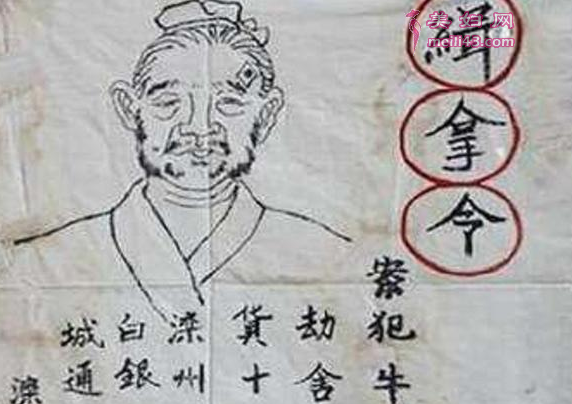 緝拿令
案犯牛
劫舍
貨十
滦州
白銀
城通
滦
美妈网
meili43.com